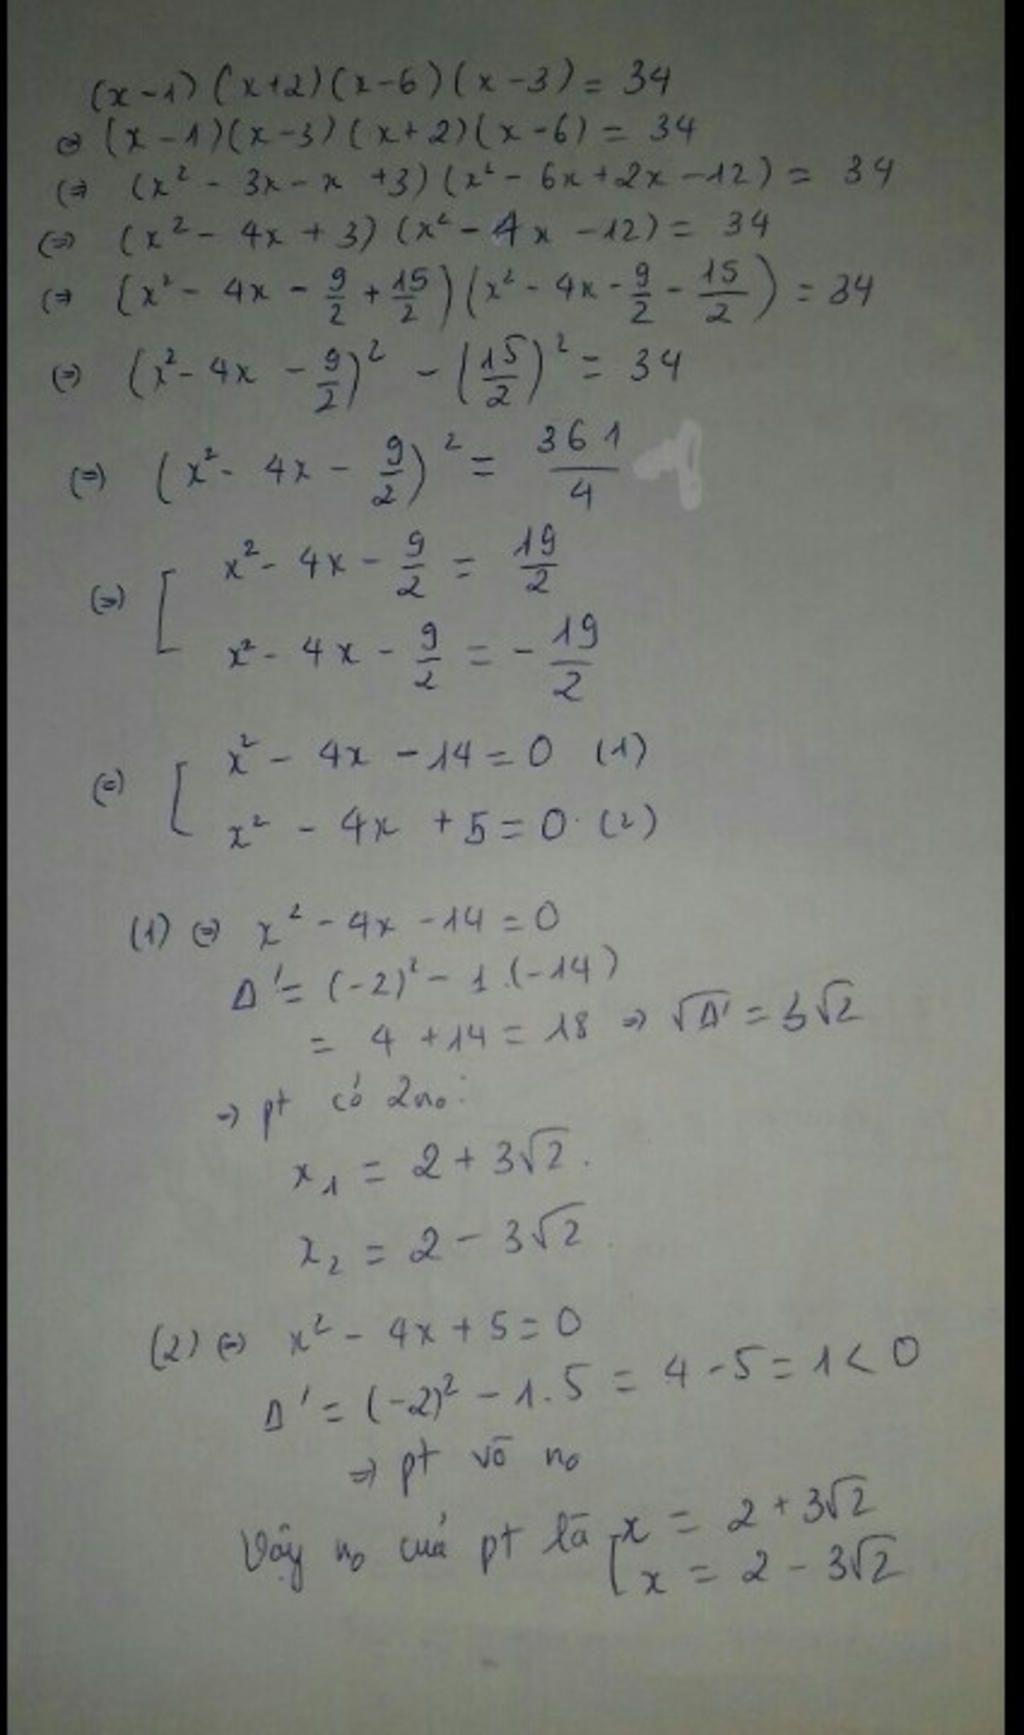 (x-1)(x+2)(x-6)(x-3) = 34
⇔ (x-1)(x-3)(x+2)(x-6) = 34
⇔ (x² - 3x - x + 3)(x² - 6x + 2x - 12) = 34
⇔ (x² - 4x + 3)(x² - 4x - 12) = 34
⇔ (x² - 4x - 9/2 + 15/2)(x² - 4x - 9/2 - 15/2) = 34
⇔ (x² - 4x - 9/2)² - (15/2)² = 34
⇔ (x² - 4x - 9/2)² = 361/4
⇔ [ x² - 4x - 9/2 = 19/2
x² - 4x - 9/2 = - 19/2
⇔ [ x² - 4x - 14 = 0 (1)
x² - 4x + 5 = 0. (2)
(1) ⇔ x² - 4x - 14 = 0
Δ' = (-2)² - 1.(-14)
= 4 + 14 = 18 ⇒ √Δ' = 3√2
→ pt có 2 n₀:
x₁ = 2 + 3√2.
x₂ = 2 - 3√2.
(2) ⇔ x² - 4x + 5 = 0
Δ' = (-2)² - 1.5 = 4 - 5 = 1 < 0
⇒ pt vô n₀
Vậy n₀ của pt là [ x = 2 + 3√2
x = 2 - 3√2